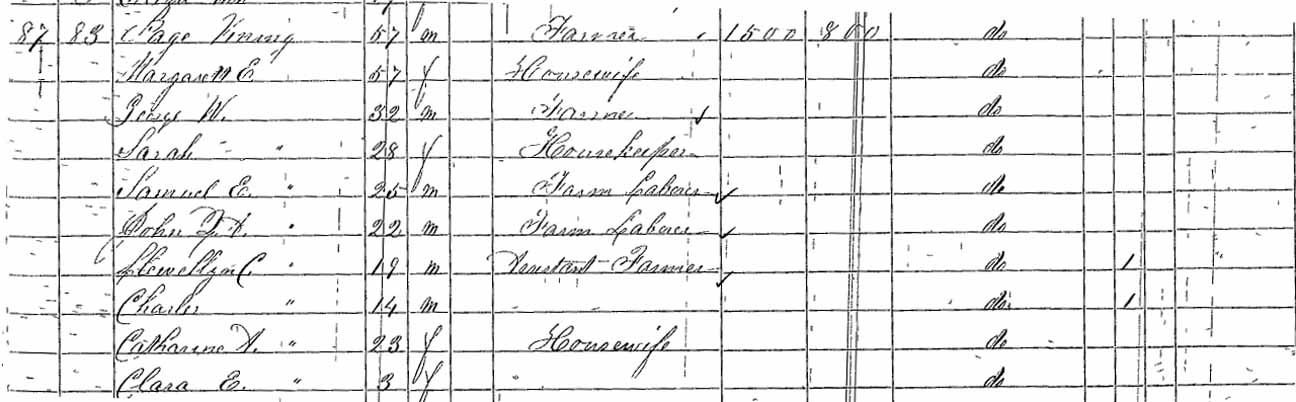 87 83 Page Vining 57 m Farmer 1500 800 do
Margarett E. 57 f Housewife do
George W. 32 m Farmer do
Sarah " 28 f Housekeeper do
Samuel E. " 25 m Farm Laborer do
John " 22 m Farm Laborer do
Llewellyn C. " 19 m Farmer do 1
Charles " 14 m do 1
Catharine A. " 23 f Housewife do
Clara E. " 3 f " do